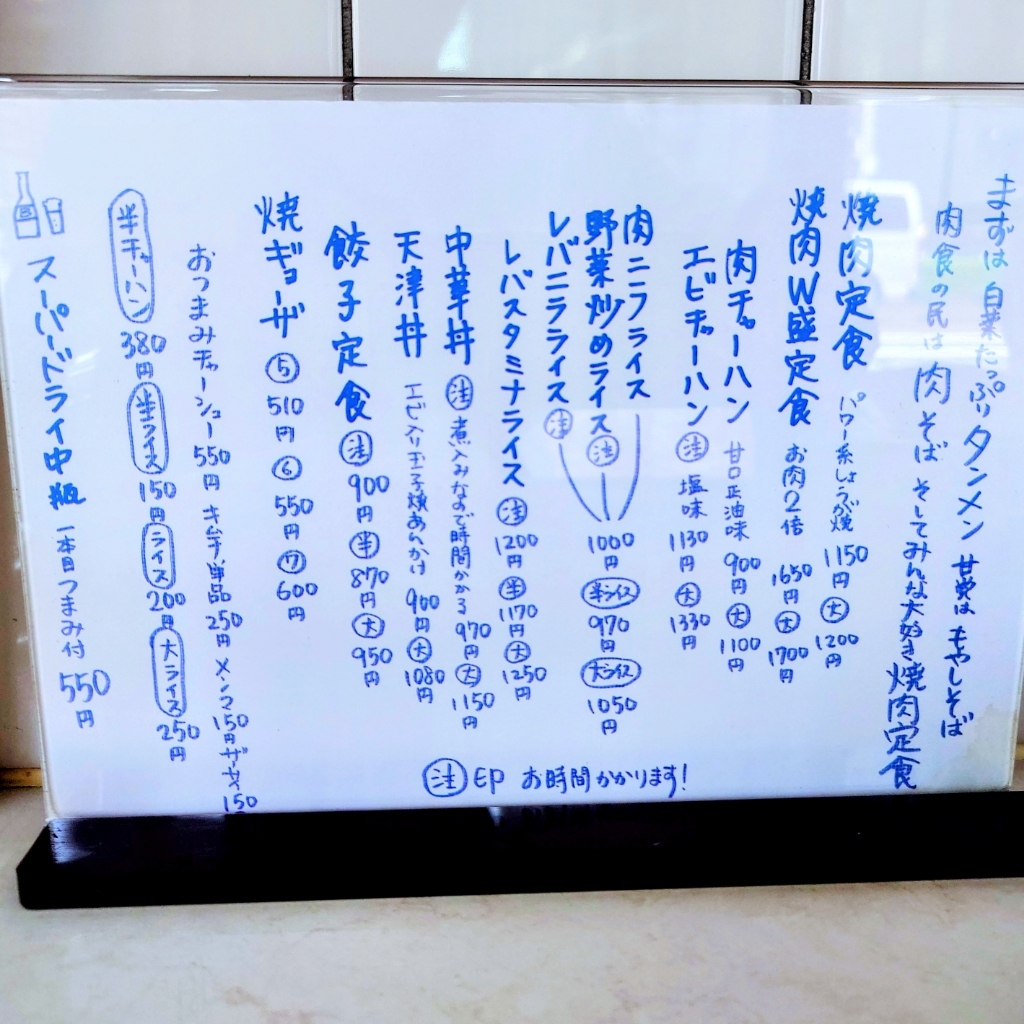 まずは白菜たっぷりタンメン 甘党はもやしそば
肉食の民は肉そば そしてみんな大好き焼肉定食
焼肉定食 パワー系しょうが焼 1150円 大 1200円
焼肉W盛定食 お肉2倍 1650円 大 1700円
肉チャーハン 甘口正油味 900円 大 1100円
エビチャーハン 注 塩味 1130円 大 1330円
肉ニラライス
野菜炒めライス 注
レバニラライス 注
1000円 半ライス 970円 大ライス 1050円
レバスタミナライス 注 1200円 半 1170円 大 1250円
中華丼 注 煮込みなので時間かかる 970円 大 1150円
天津丼 エビ入り玉子焼あんかけ 900円 大 1080円
餃子定食 注 900円 半 870円 大 950円
焼ギョーザ 5 510円 6 550円 7 600円
おつまみチャーシュー 550円 キムチ単品 250円 メンマ 150円 ザーサイ 150
半チャーハン 380円 半ライス 150円 ライス 200円 大ライス 250円
スーパードライ中瓶 一本目つまみ付 550円
注 EP お時間かかります!